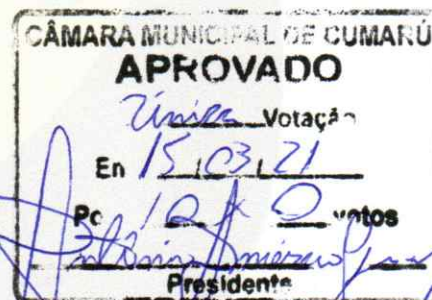 CÂMARA MUNICIPAL DE CUMARÚ
APROVADO
Única Votação
Em 15/03/21
Po 10 x 0 votos
Antônio
Presidente